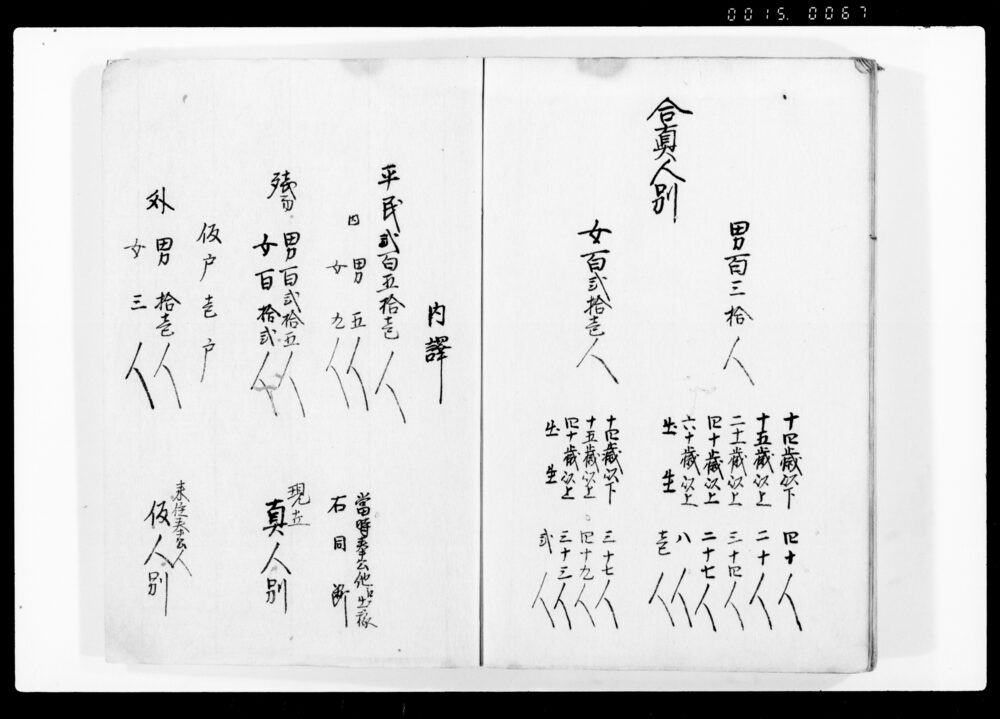 0015. 0067
合眞人別
男百三拾人
十四歳以下 四十人
十五歳以上 二十人
二十一歳以上 三十四人
四十歳以上 二十七人
六十歳以上 八人
出生 壱人
女百弐拾壱人
十四歳以下 三十七人
十五歳以上 四十九人
四十歳以上 三十三人
出生 弐人
内譯
平民弐百五拾壱人
内 男五人 當時奉公他出稼
女九人 石同断
残而 男百弐拾五人 現在
女百拾弐人 真人別
仮戸壱戸
外 男拾壱人 来住奉公人
女三人 仮人別